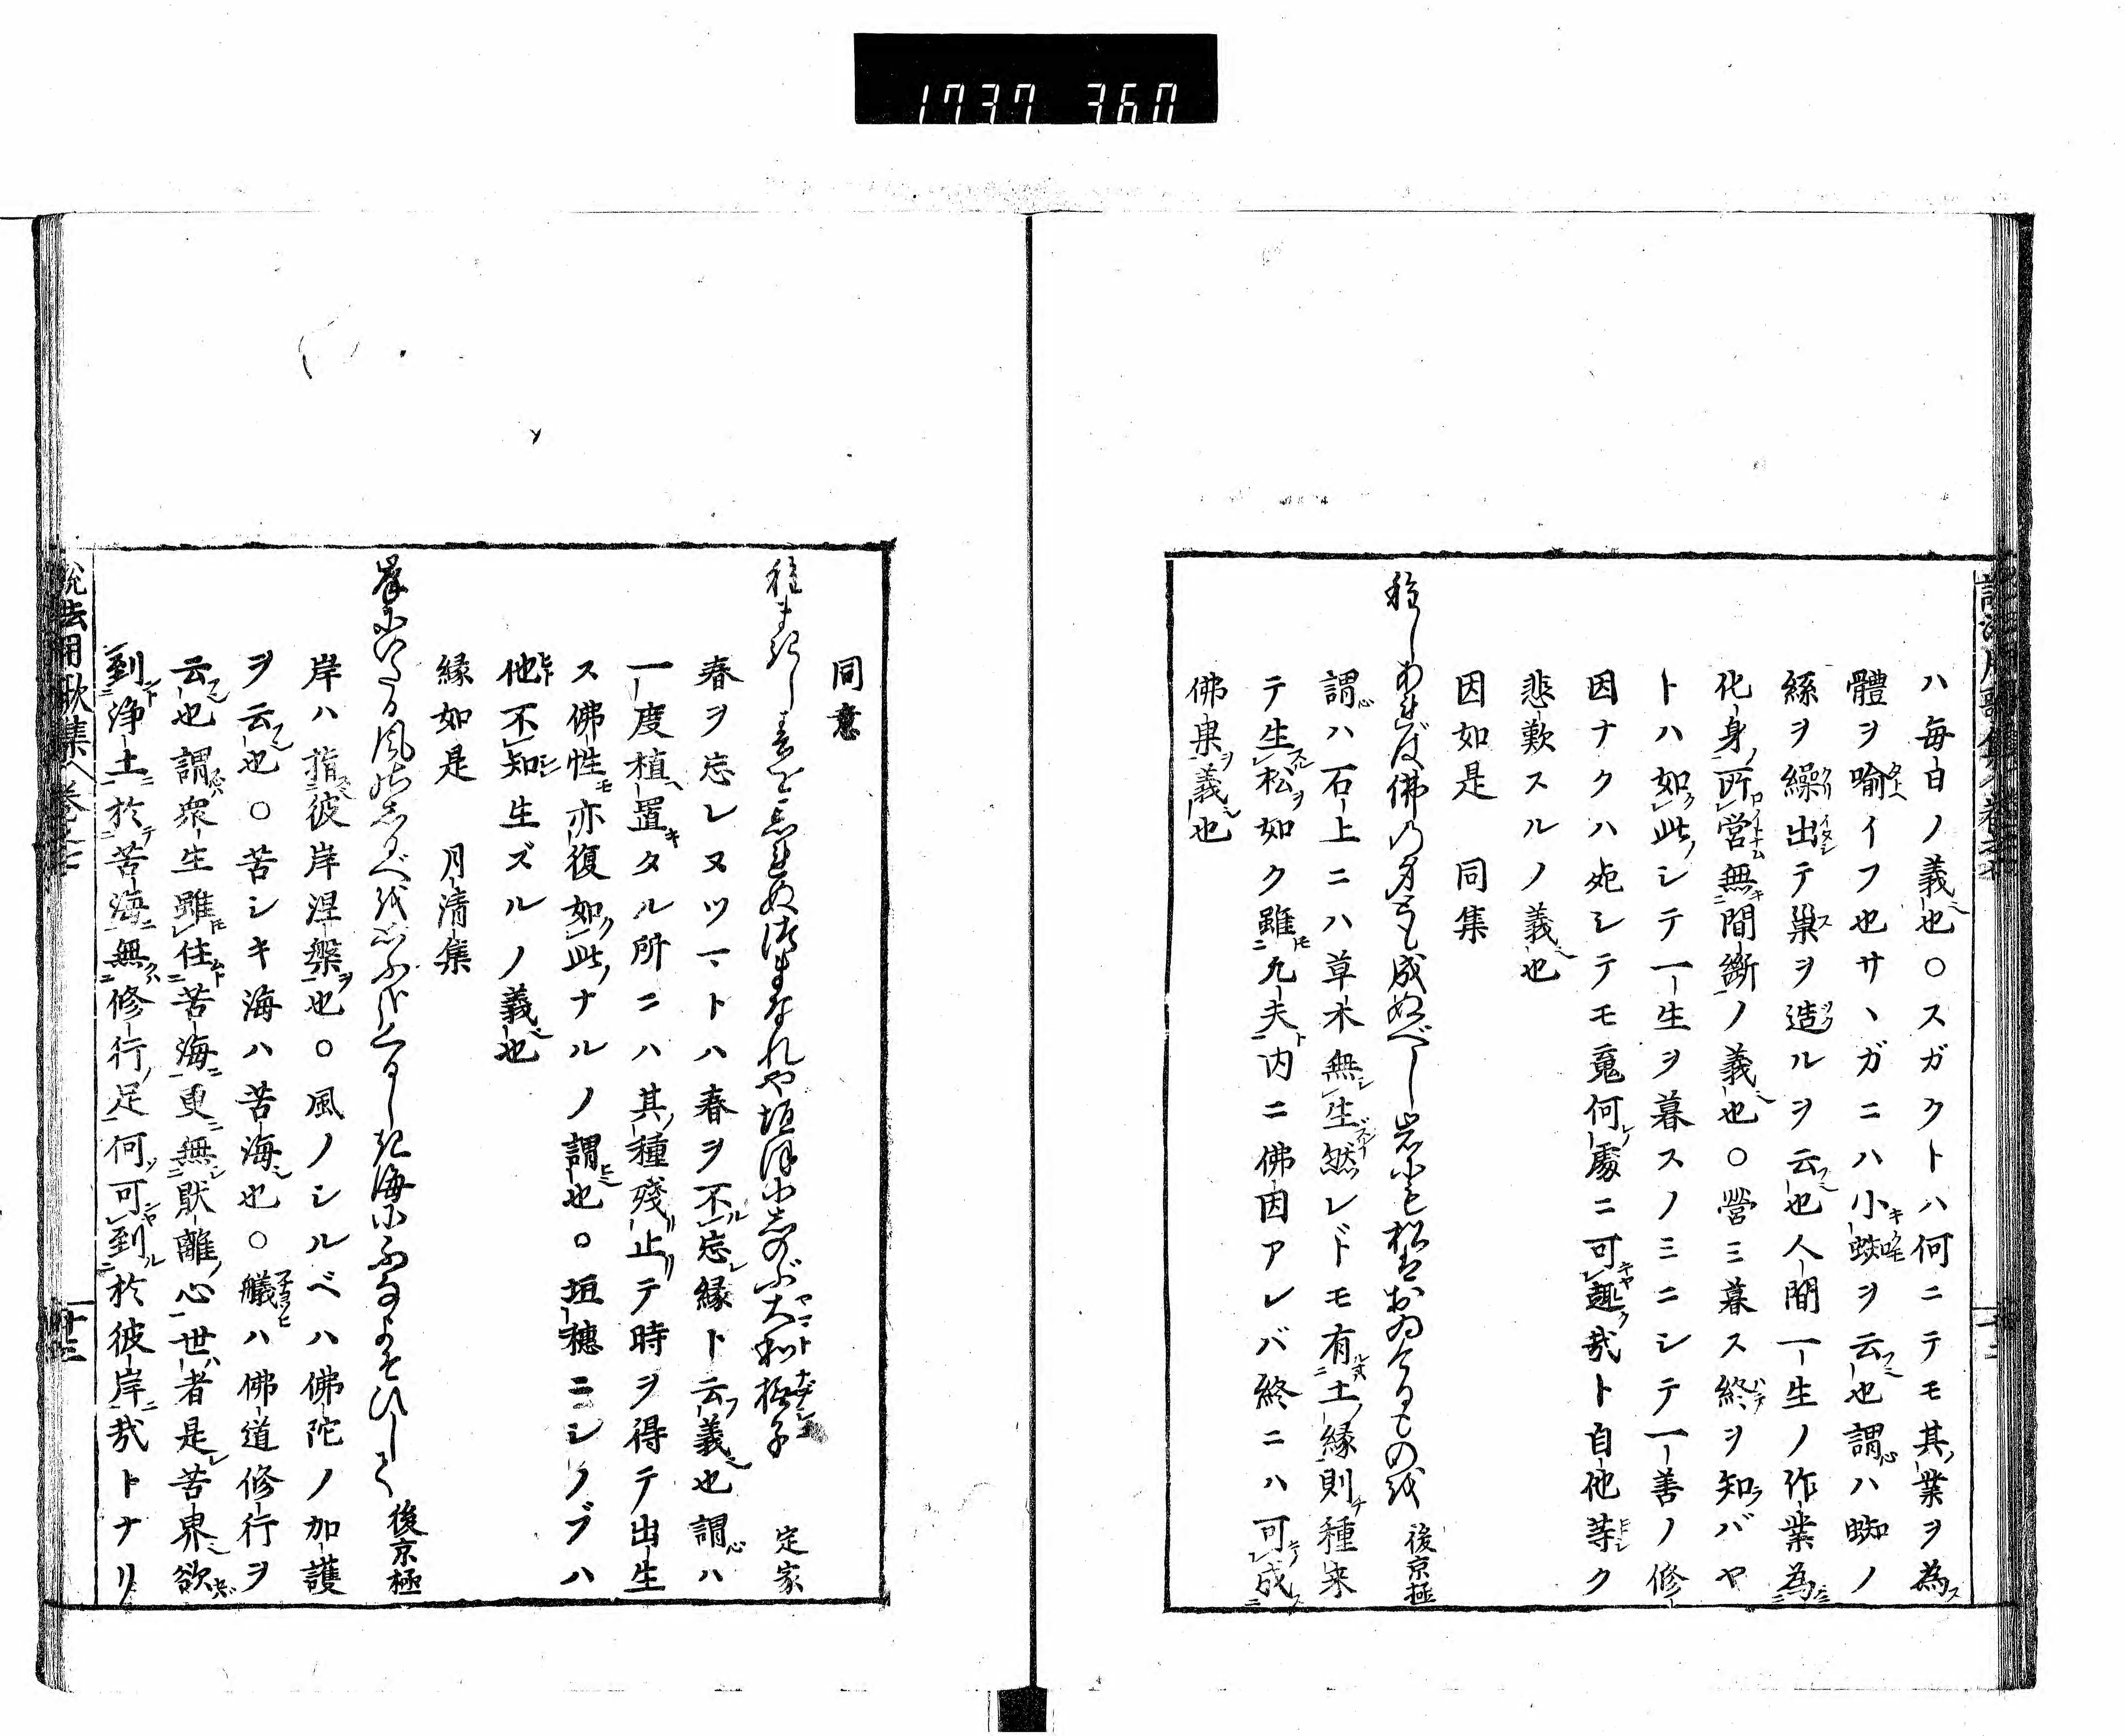 1737 360
ハ毎日ノ義也○スガクトハ何ニテモ其業ヲ為
體ヲ喩イフ也サヽガニハ小蜘ヲ云也謂ハ蜘ノ
絲ヲ繰出テ巣ヲ造ルヲ云也人間一生ノ作業為
化身所営無間斷ノ義也○營ミ暮ス終ヲ知バヤ
トハ如此シテ一生ヲ暮スノミニシテ一善ノ修
因ナクハ死シテモ亦何處ニ可趣哉ト自他等ク
悲歎スルノ義也
因如是 同集
種しあれば佛の身とも成ぬべし岩にも松はおゐけるものを 後京極
謂ハ石上ニハ草木無生然レドモ有土縁則種来
テ生松如ク雖凡夫内ニ佛因アレバ終ニハ可成
佛果義也
同意
種まきし春を忘れぬ つまなれや垣ほにしのぶ大和撫子 定家
春ヲ忘レヌツマトハ春ヲ不忘縁ト云義也謂ハ
一度植置タル所ニハ其種殘止テ時ヲ得テ出生
ス佛性亦復如此ナルノ謂也○垣穗ニシノブハ
他不知生ズルノ義也
縁如是 月清集
岸にいたる風のしるべをおもふ哉くるしき海にふなよそひして 後京極
岸ハ指彼岸涅槃也○風ノシルベハ佛陀ノ加護
ヲ云也○苦シキ海ハ苦海也○艤ハ佛道修行ヲ
云也謂衆生雖住苦海更無猒離心世者是苦界欲
到浄土於苦海無修行足何可到於彼岸哉トナリ
説法用歌集 巻之七
十三